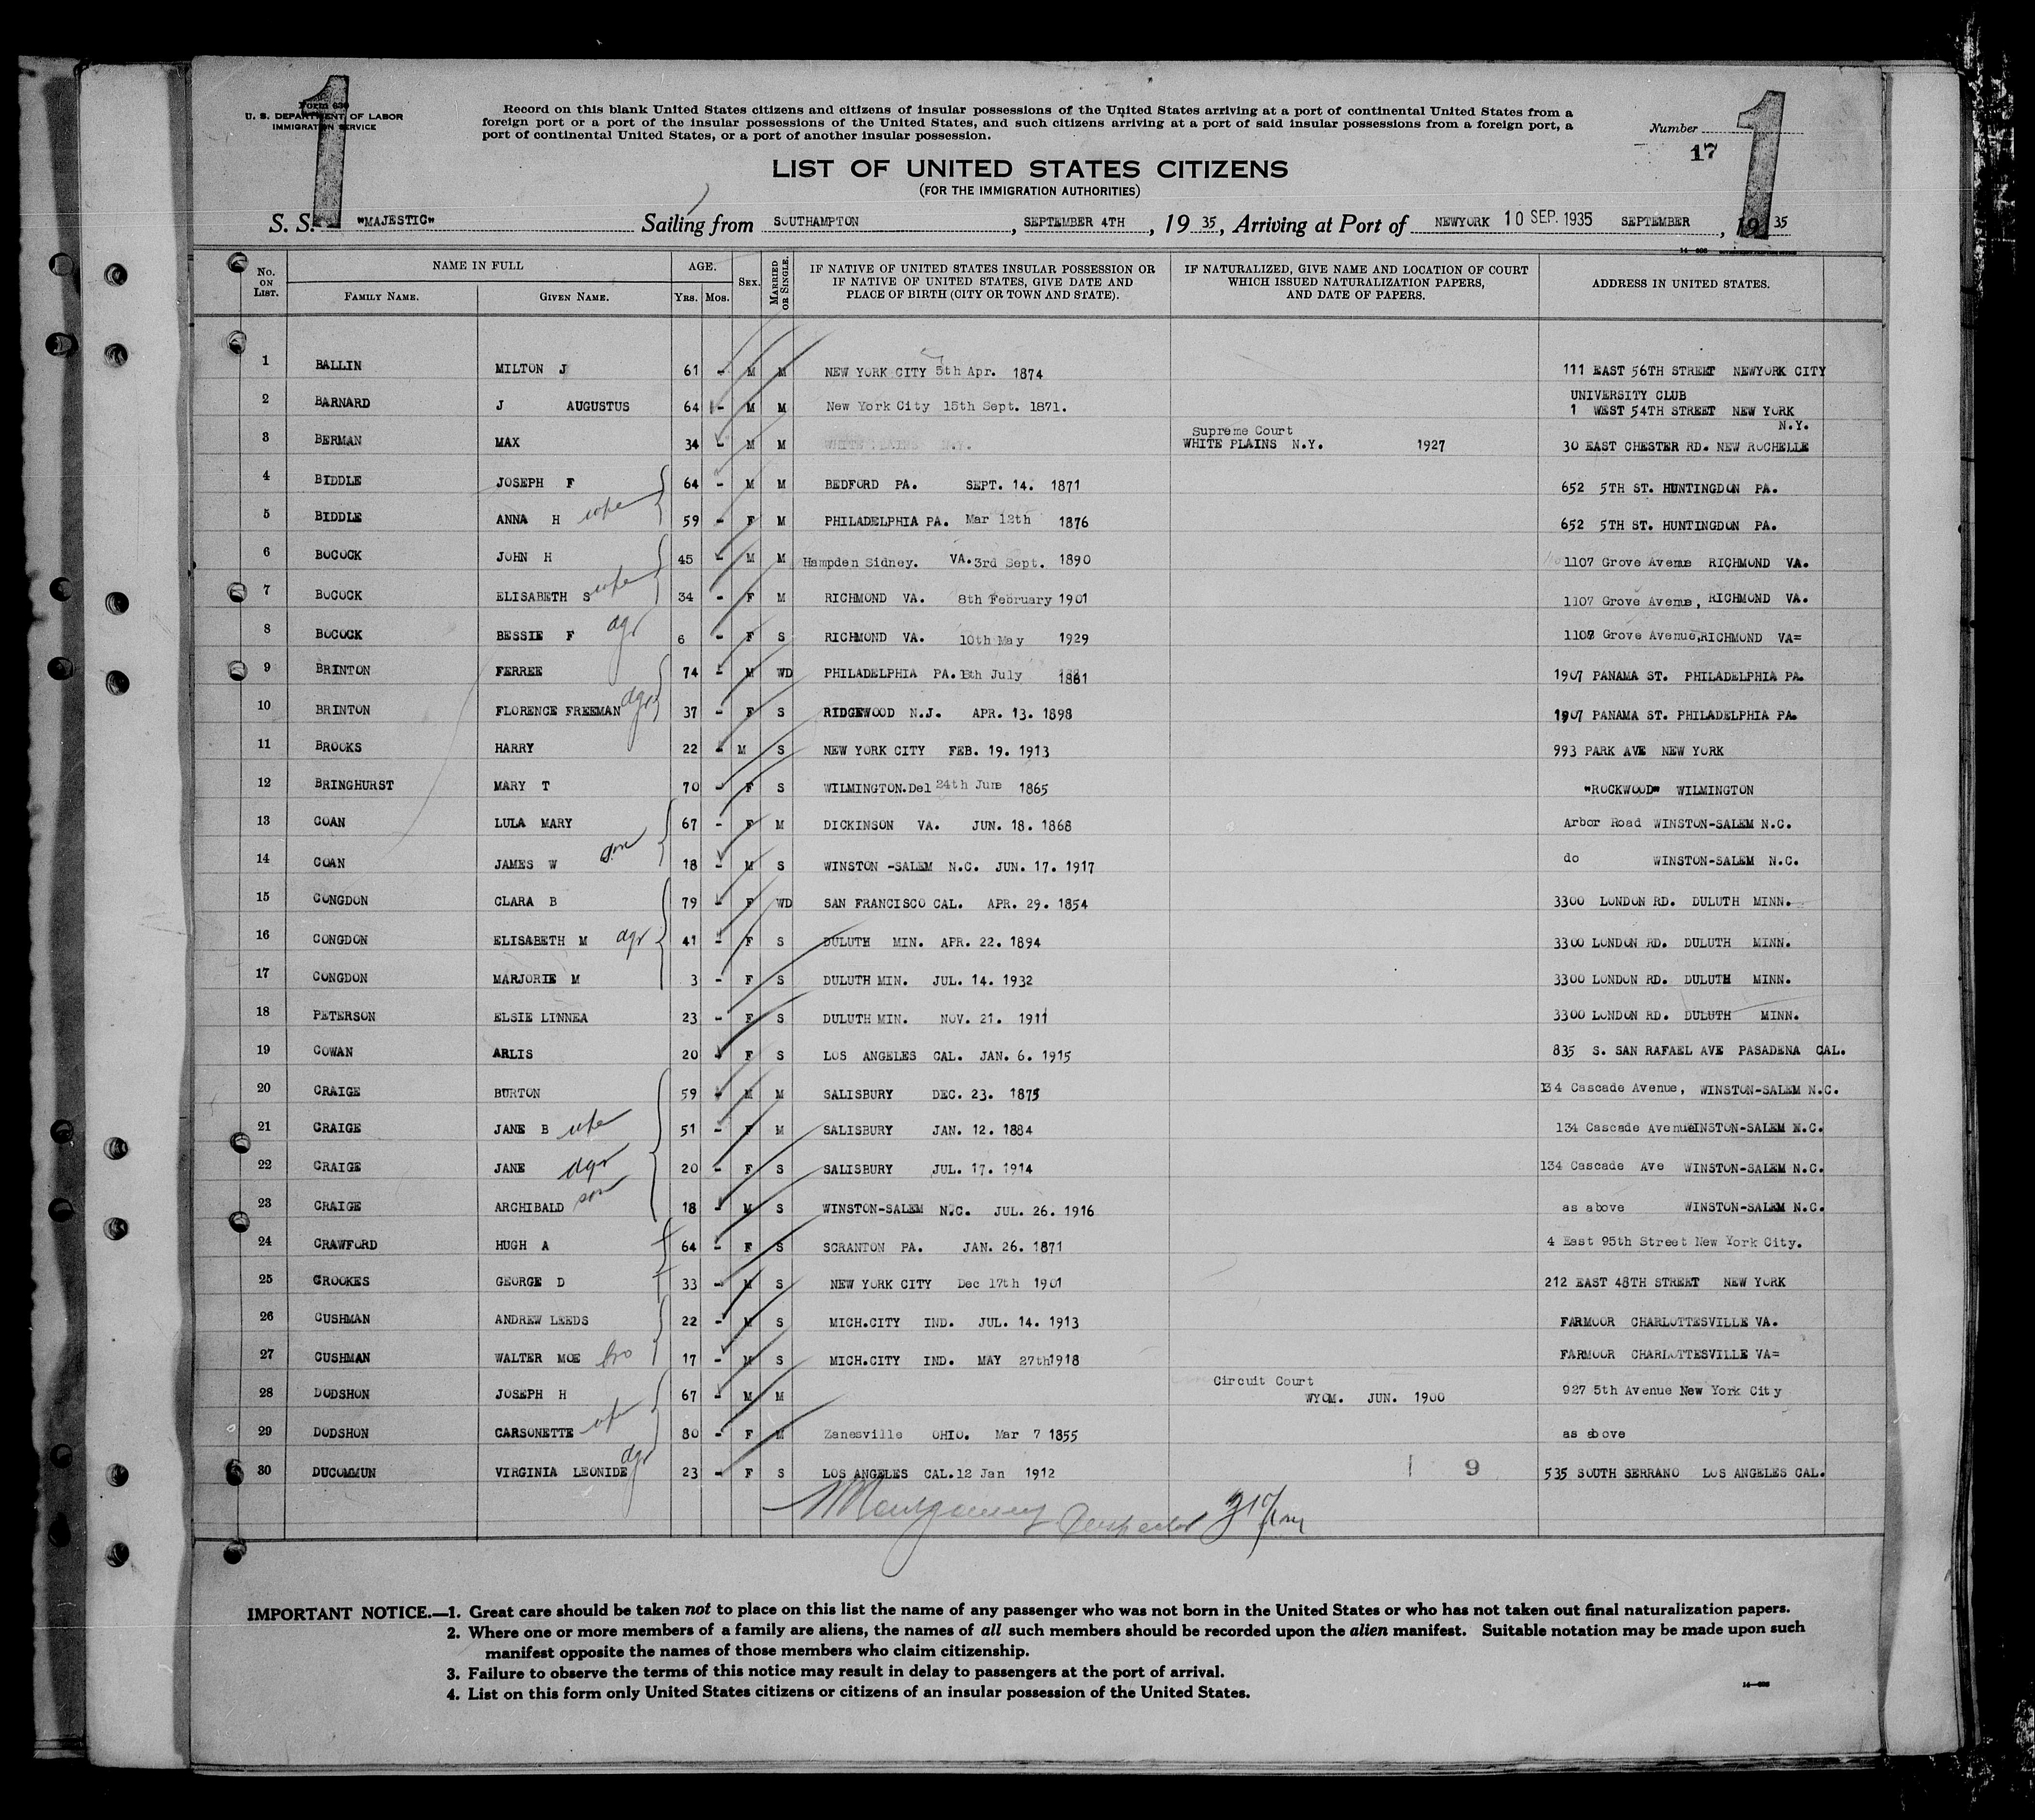 1
1
Form 630
U. S. DEPARTMENT OF LABOR
IMMIGRATION SERVICE
Record on this blank United States citizens and citizens of insular possessions of the United States arriving at a port of continental United States from a
foreign port or a port of the insular possessions of the United States, and such citizens arriving at a port of said insular possessions from a foreign port, a
port of continental United States, or a port of another insular possession.
Number
17
LIST OF UNITED STATES CITIZENS
(FOR THE IMMIGRATION AUTHORITIES)
S. S. "MAJESTIC" Sailing from SOUTHAMPTON, SEPTEMBER 4TH, 19 35, Arriving at Port of NEWYORK 10 SEP. 1935 SEPTEMBER, 19 35
No. ON LIST. NAME IN FULL AGE. SEX. MARRIED OR SINGLE. IF NATIVE OF UNITED STATES INSULAR POSSESSION OR IF NATIVE OF UNITED STATES, GIVE DATE AND PLACE OF BIRTH (CITY OR TOWN AND STATE). IF NATURALIZED, GIVE NAME AND LOCATION OF COURT WHICH ISSUED NATURALIZATION PAPERS, AND DATE OF PAPERS. ADDRESS IN UNITED STATES.
FAMILY NAME. GIVEN NAME. YRS. MOS.
1 BALLIN MILTON J 61 - M M NEW YORK CITY 5th Apr. 1874 111 EAST 56TH STREET NEWYORK CITY
2 BARNARD J AUGUSTUS 64 - M M New York City 15th Sept. 1871. UNIVERSITY CLUB
1 WEST 54TH STREET NEW YORK
N.Y.
3 BERMAN MAX 34 - M M WHITE PLAINS N.Y. Supreme Court
WHITE PLAINS N.Y. 1927 30 EAST CHESTER RD. NEW ROCHELLE
4 BIDDLE JOSEPH F 64 - M M BEDFORD PA. SEPT. 14. 1871 652 5TH ST. HUNTINGDON PA.
5 BIDDLE ANNA H wife 59 - F M PHILADELPHIA PA. Mar 12th 1876 652 5TH ST. HUNTINGDON PA.
6 BOCOCK JOHN H 45 - M M Hampden Sidney. VA. 3rd Sept. 1890 1107 Grove Avenue RICHMOND VA.
7 BOCOCK ELISABETH S wife 34 - F M RICHMOND VA. 8th February 1901 1107 Grove Avenue, RICHMOND VA.
8 BOCOCK BESSIE F dgr 6 - F S RICHMOND VA. 10th May 1929 1107 Grove Avenue, RICHMOND VA=
9 BRINTON FERREE 74 - M WD PHILADELPHIA PA. July 1861 1907 PANAMA ST. PHILADELPHIA PA.
10 BRINTON FLORENCE FREEMAN dgr 37 - F S RIDGEWOOD N.J. APR. 13. 1898 1907 PANAMA ST. PHILADELPHIA PA.
11 BROOKS HARRY 22 - M S NEW YORK CITY FEB. 19. 1913 993 PARK AVE NEW YORK
12 BRINGHURST MARY T 70 - F S WILMINGTON.Del 24th June 1865 "ROCKWOOD" WILMINGTON
13 COAN LULA MARY 67 - F M DICKINSON VA. JUN. 18. 1868 Arbor Road WINSTON-SALEM N.C.
14 COAN JAMES W son 18 - M S WINSTON -SALEM N.C. JUN. 17. 1917 do WINSTON-SALEM N.C.
15 CONGDON CLARA B 79 - F WD SAN FRANCISCO CAL. APR. 29. 1854 3300 LONDON RD. DULUTH MINN.
16 CONGDON ELISABETH M dgr 41 - F S DULUTH MIN. APR. 22. 1894 3300 LONDON RD. DULUTH MINN.
17 CONGDON MARJORIE M 3 - F S DULUTH MIN. JUL. 14. 1932 3300 LONDON RD. DULUTH MINN.
18 PETERSON ELSIE LINNEA 23 - F S DULUTH MIN. NOV. 21. 1911 3300 LONDON RD. DULUTH MINN.
19 COWAN ARLIS 20 - F S LOS ANGELES CAL. JAN. 6. 1915 835 S. SAN RAFAEL AVE PASADENA CAL.
20 CRAIGE BURTON 59 - M M SALISBURY DEC. 23. 1875 134 Cascade Avenue, WINSTON-SALEM N.C.
21 CRAIGE JANE B wife 51 - F M SALISBURY JAN. 12. 1884 134 Cascade Avenue WINSTON-SALEM N.C.
22 CRAIGE JANE dgr 20 - F S SALISBURY JUL. 17. 1914 134 Cascade Ave WINSTON-SALEM N.C.
23 CRAIGE ARCHIBALD son 18 - M S WINSTON-SALEM N.C. JUL. 26. 1916 as above WINSTON-SALEM N.C.
24 CRAWFORD HUGH A 64 - F S SCRANTON PA. JAN. 26. 1871 4 East 95th Street New York City.
25 CROOKES GEORGE D 33 - M S NEW YORK CITY Dec 17th 1901 212 EAST 48TH STREET NEW YORK
26 CUSHMAN ANDREW LEEDS 22 - M S MICH.CITY IND. JUL. 14. 1913 FARMOOR CHARLOTTESVILLE VA.
27 CUSHMAN WALTER MOE bro 17 - M S MICH.CITY IND. MAY 27th1918 FARMOOR CHARLOTTESVILLE VA=
28 DODSHON JOSEPH H 67 - M M Circuit Court
WYOM. JUN. 1900 927 5th Avenue New York City
29 DODSHON CARSONETTE wife 80 - F M Zanesville OHIO. Mar 7 1855 as above
30 DUCOMMUN VIRGINIA LEONIDE dgr 23 - F S LOS ANGELES CAL. 12 Jan 1912 9 535 SOUTH SERRANO LOS ANGELES CAL.
Montgomery Inspector
IMPORTANT NOTICE.—1. Great care should be taken not to place on this list the name of any passenger who was not born in the United States or who has not taken out final naturalization papers.
2. Where one or more members of a family are aliens, the names of all such members should be recorded upon the alien manifest. Suitable notation may be made upon such
manifest opposite the names of those members who claim citizenship.
3. Failure to observe the terms of this notice may result in delay to passengers at the port of arrival.
4. List on this form only United States citizens or citizens of an insular possession of the United States.